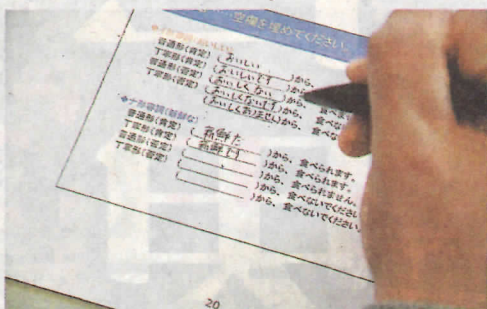 空欄を埋めてください。
◆イ形容詞(おいしい)
普通形(肯定) (おいしい )から、
丁寧形(肯定) (おいしいです )から、
普通形(否定) (おいしくない )から、 食べ
丁寧形(否定) (おいしくないです)から、 食べ
(おいしくありません)から、 食べな
◆ナ形容詞(新鮮な)
普通形(肯定) (新鮮だ )から、 食べられます。
丁寧形(肯定) (新鮮です )から、 食べられます。
普通形(否定) ( )から、 食べられません。
丁寧形(否定) ( )から、 食べないでください
( )から、 食べないでください。
20